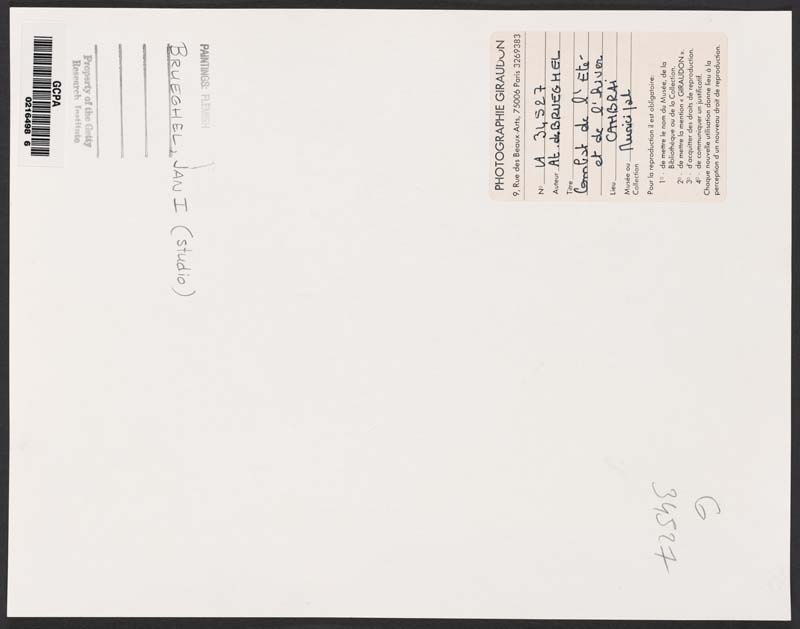 GCPA
0216498 6
Property of the Getty
Research Institute
PAINTINGS: FLEMISH
BRUEGHEL, JAN I (studio)
PHOTOGRAPHIE GIRAUDON
9, Rue des Beaux Arts, 75006 Paris 3269383
N° LA 34527
Auteur At. de BRUEGHEL
Titre
Combat de l'Eté
et de l'hiver
Lieu CAMBRAI
Musée ou Municipal
Collection
Pour la reproduction il est obligatoire:
1° - de mettre le nom du Musée, de la
Bibliothèque ou de la Collection.
2° - de mettre la mention « GIRAUDON ».
3° - d'acquitter des droits de reproduction.
4° - de communiquer un justificatif.
Chaque nouvelle utilisation donne lieu à la
perception d'un nouveau droit de reproduction.
G
34527